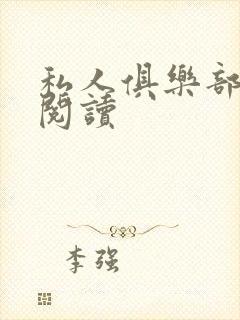 私人俱樂部
閱讀
李強